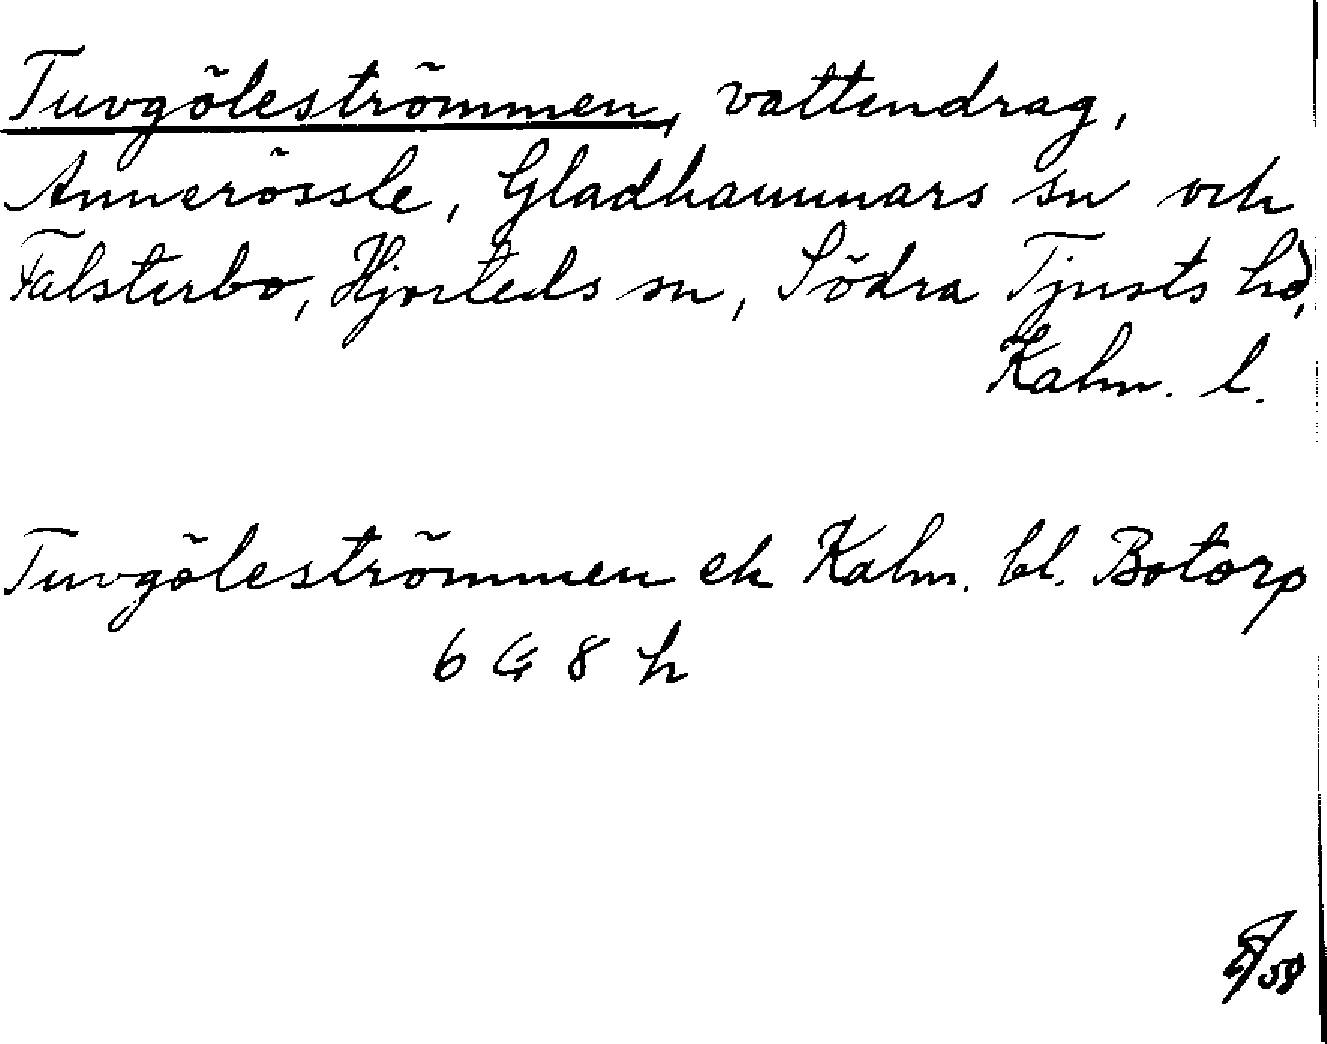 Tuvgöleströmmen, vattendrag,
Annerössle, Gladhammars sn och
Falsterbo, Hjorteds sn, Södra Tjusts hd,
Kalm. l.
Tuvgöleströmmen ek Kalm. bl. Botorp
6 G 8 h